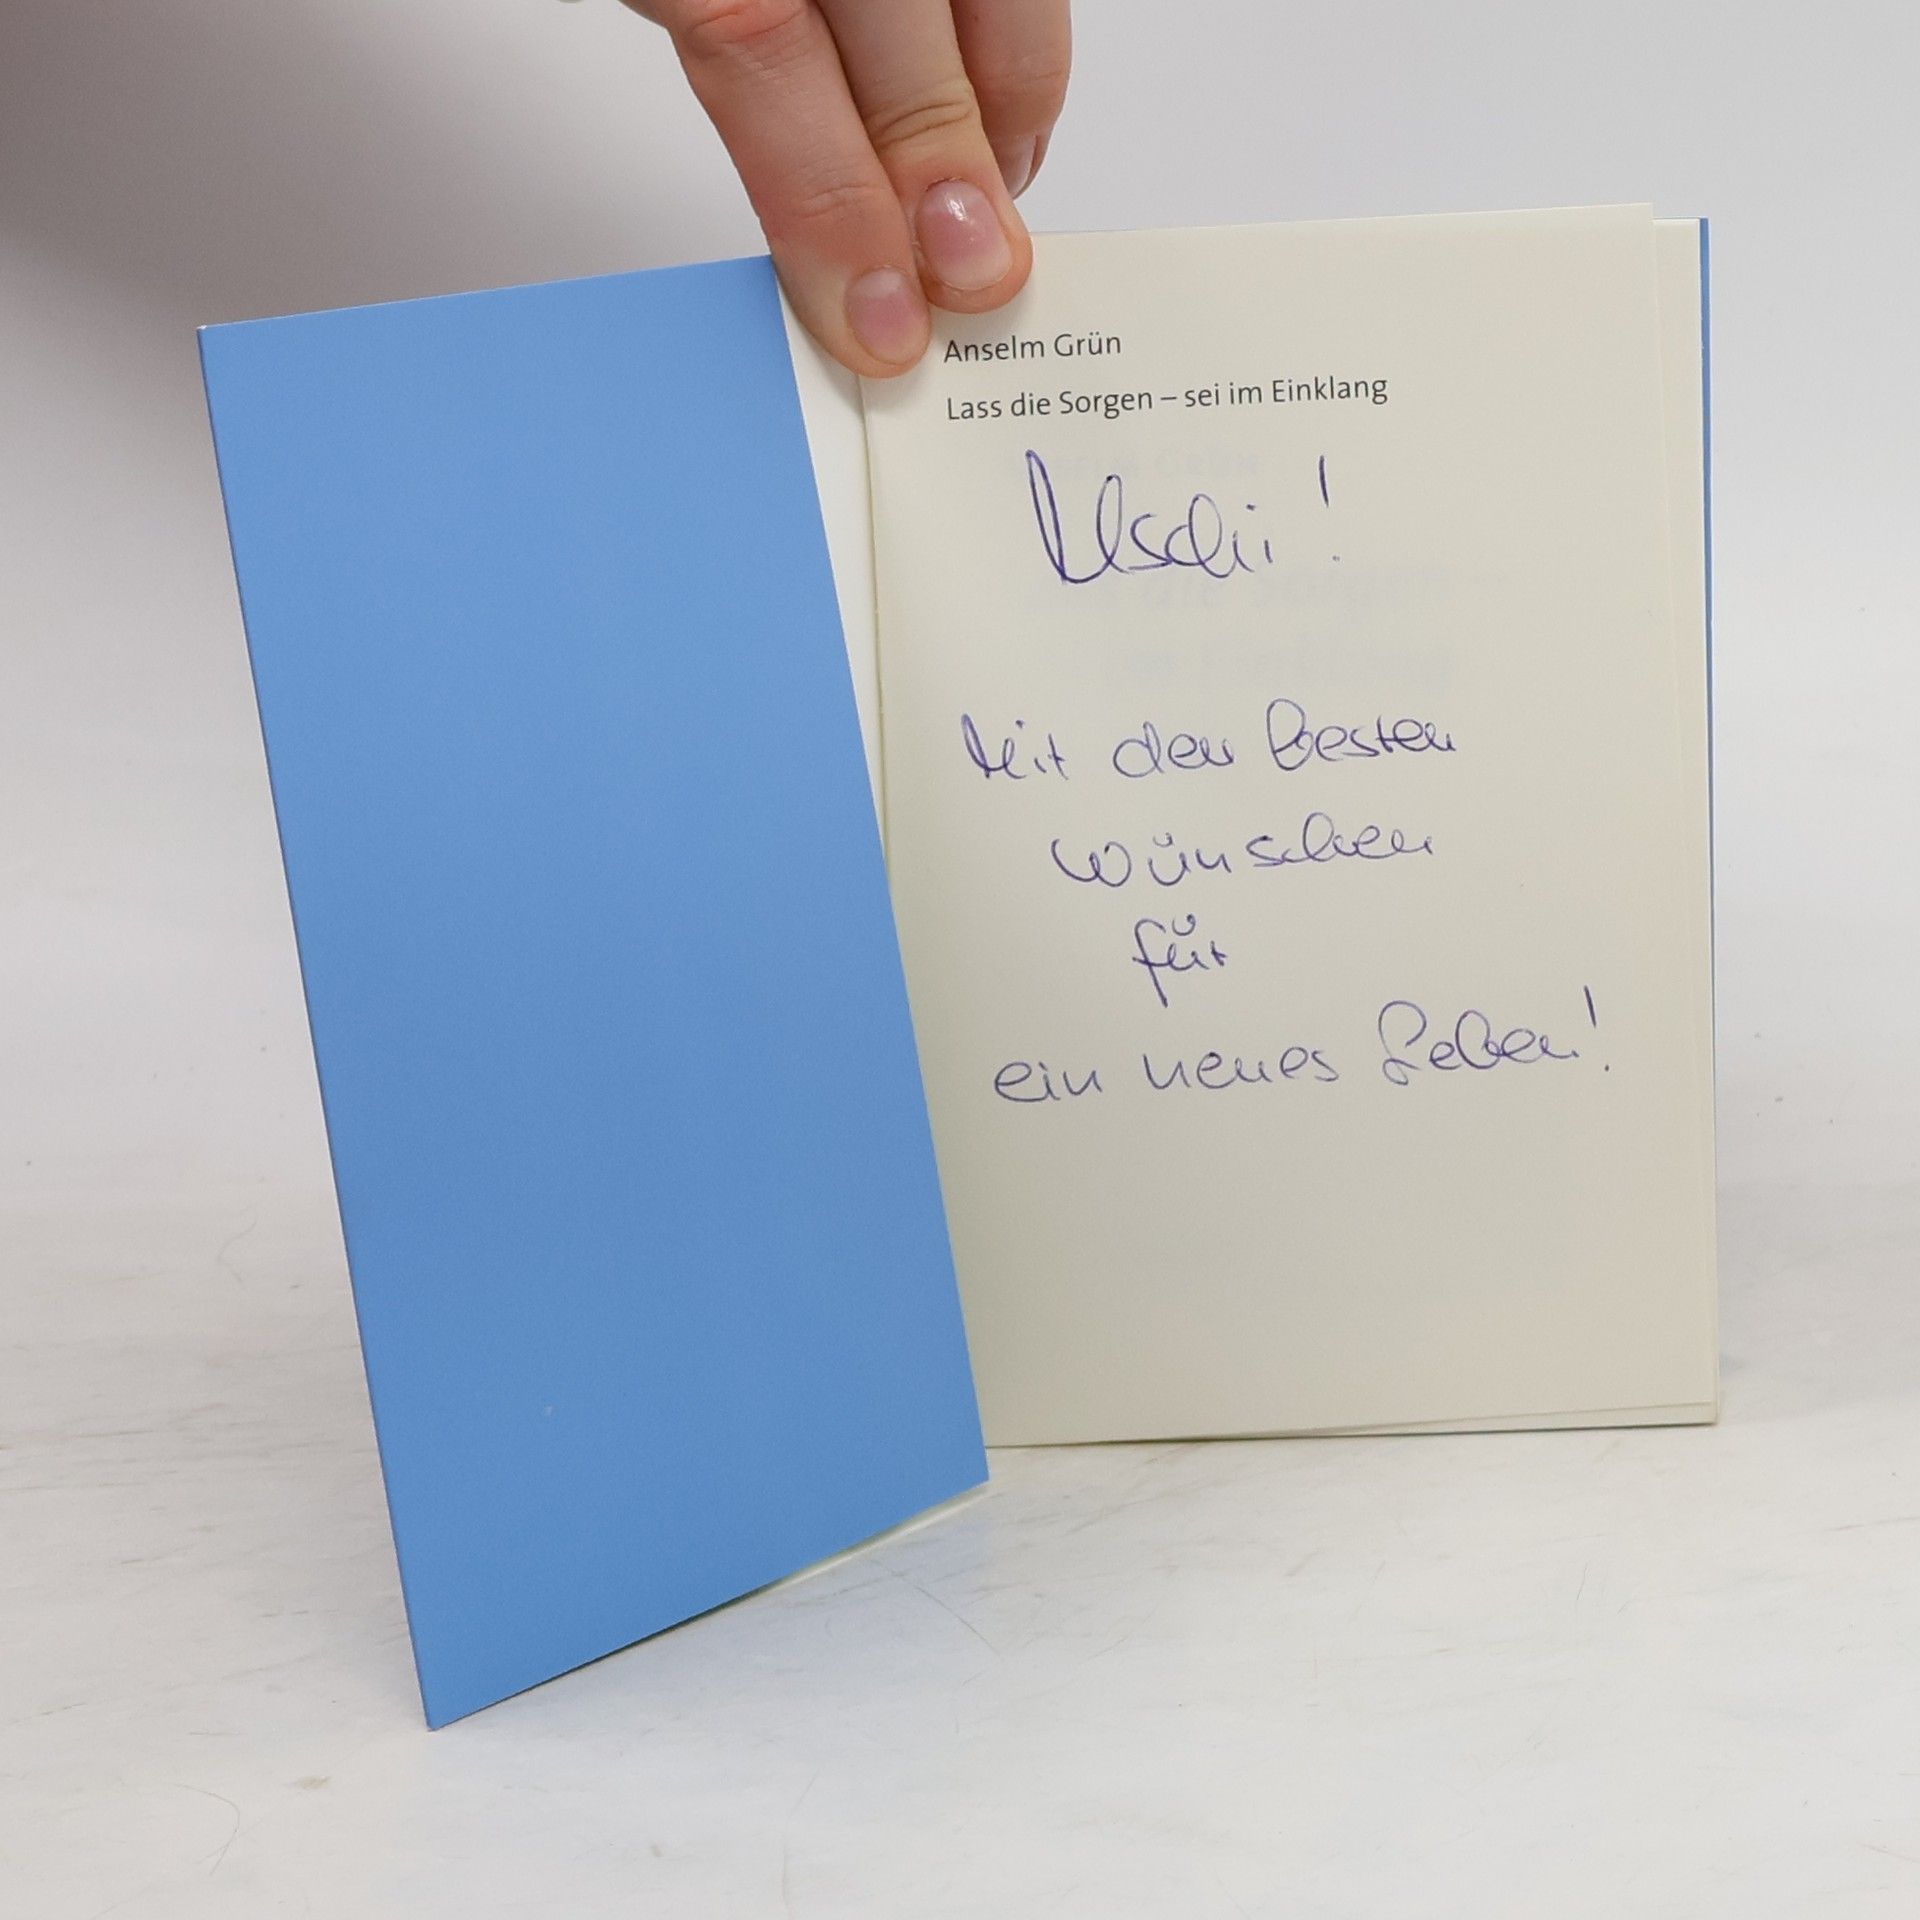 Anselm Grün
Lass die Sorgen – sei im Einklang
Uschi!
Mit den besten
Wünschen
für
ein neues Leben!